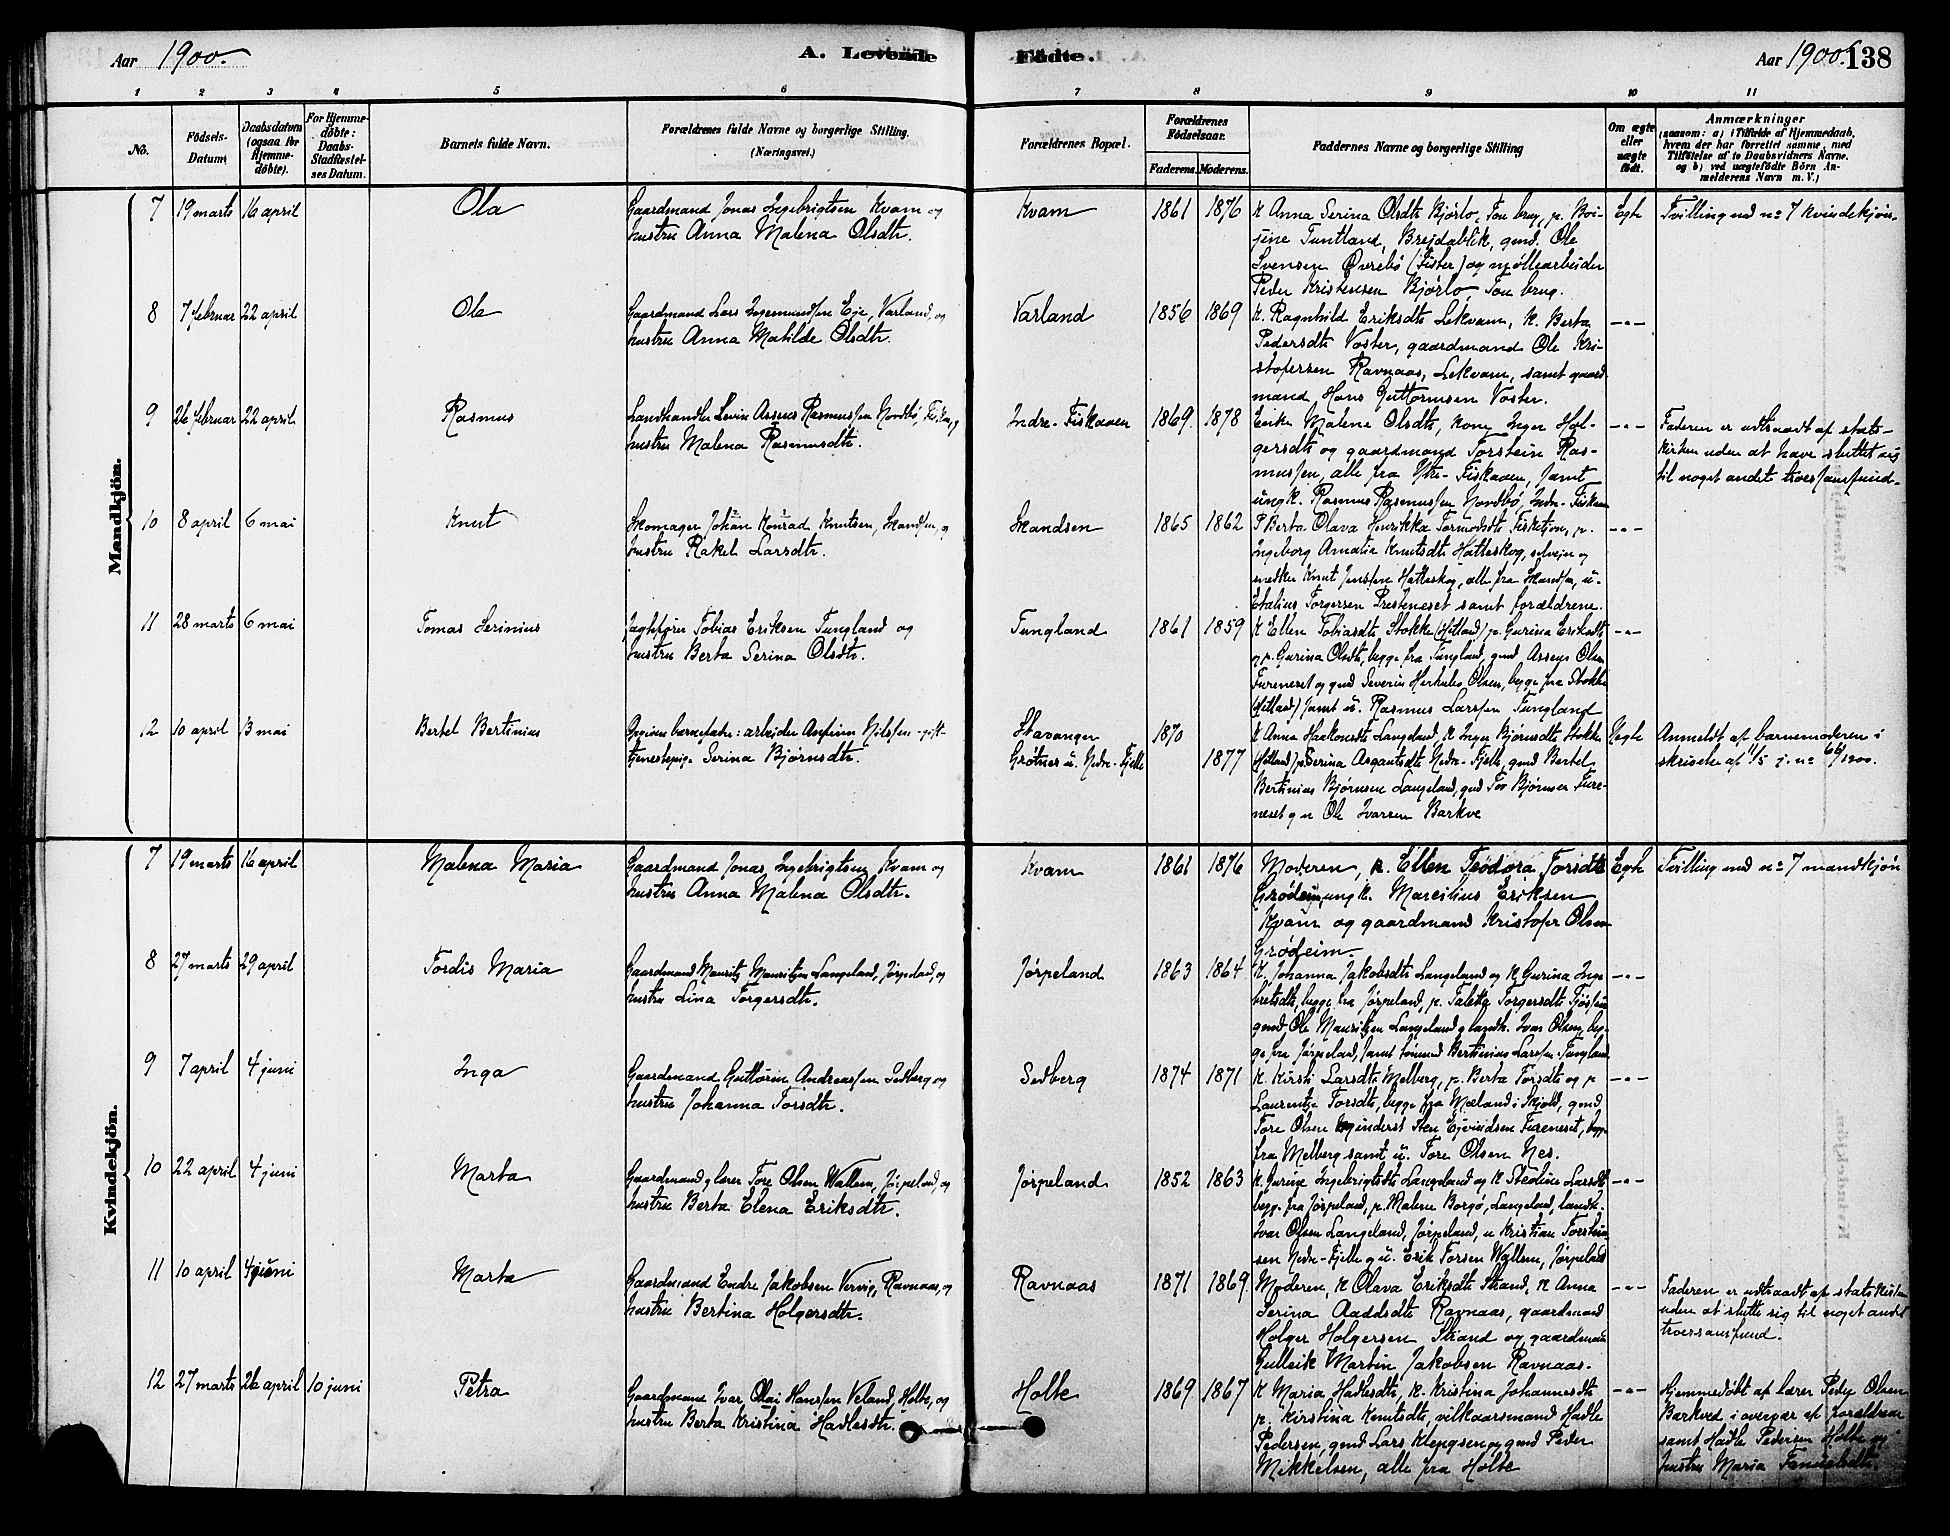 Aar 1900.
A. Levende
Fødte.
Aar 1900. 138
1 2 3 4 5 6 7 8 9 10 11
No.
Fødsels-Datum.
Daabsdatum (ogsaa for Hjemmedøbte).
For Hjemmedøbte: Daabs-Stadfæstelses Datum.
Barnets fulde Navn.
Forældrenes fulde Navne og borgerlige Stilling. (Næringsvei.)
Forældrenes Bopæl.
Forældrenes Fødselsaar.
Faderens. Moderens.
Faddernes Navne og borgerlige Stilling
Om ægte eller uægte født.
Anmærkninger
(saasom: a) i Tilfælde af Hjemmedaab, hvem der har forrettet samme, med Tilføielse af to Daabsvidners Navne. og b) ved uægtefødte Børn Anmelderens Navn m. V.)
Mandkjøn.
7 19 marts 16 april Ola
Gaardmand Jonas Ingebrigtsen Kvam og
hustru Anna Malena Olsdtr.
Kvam 1861 1876
K Anna Serina Olsdtr Bjørlo, Tou brug, p.
Tuntland, Brejdablik, gmd. Ole
Svensen Øvrebø (Fister) og møllearbeider
Peder Kristensen Bjørlo, Tou brug.
Egte
Tvilling med no 7 kvindekjøn.
8 7 februar 22 april Ole
Gaardmand Lars Ingemundsen Eje, Varland, og
hustru Anna Matilde Olsdtr.
Varland 1856 1869
K. Ragnhild Eriksdtr Lekvam, K. Berta
Pedersdtr Voster, gaardmand Ole Kri-
stofersen Ravnaas, Lekvam, samt gaard-
mand Hans Guttormsen Voster.
-"-
9 26 februar 22 april Rasmus
Landhandler Levin Asseus Rasmussen Nordbø, Fiskaa, og
hustru Malena Rasmusdtr.
Indre-Fiskaaen 1869 1878
Enke Malene Olsdtr, kone Inger Hol-
gersdtr og gaardmand Torstein Ras-
mussen, alle fra Ytre-Fiskaaen, samt
ungk. Rasmus Rasmussen Nordbø, Indre-Fiskaaen
-"-
Faderen er udtraadt af stats-
kirken uden at have sluttet sig
til noget andet trossamfund.
10 8 april 6 mai Knut
Skomager Johan Konrad Knutsen, Skandsen, og
hustru Rakel Larsdtr.
Skandsen 1865 1862
P Berta Olava Henrikka Tormodsdtr Fisketjøn, p.
Ingeborg Amalia Knutsdtr Hatteskog, selvejer og
snedker Knut Jenssen Hatteskog, alle fra Skandsen, u.
Etalius Torgersen Presteneset samt forældrene.
-"-
11 28 marts 6 mai Tomas Serinius
Jagtfører Tobias Eriksen Tungland og
hustru Berta Serina Olsdtr.
Tungland 1861 1859
K Ellen Tobiasdtr Stokke (Hetland) p. Gurina Eriksdtr
og p. Gurina Olsdtr, begge fra Tungland, gmd Asseus Olsen
Fureneset og gmd Severin Herkules Olsen, begge fra Stokke
(Hetland) samt u. Rasmus Larssen Tungland
-"-
12 10 april 3 mai Bertel Bertinius
Opgiven barnefader: arbeider Anfinn Nilssen - gift -
tjenestepige Serina Bjørnsdtr.
Stavanger
Grøtnes u. Nedre-Fjelle
1870
1877
K Anna Haakonsdtr Langeland, K Inger Bjørnsdtr Stokke
(Hetland) p. Serina Asgautsdtr Nedre-Fjelle, gmd Bertel
Bertinius Bjørnsen Langeland, gmd Tor Bjørnsen Fure-
neset og u Ole Ivarsen Barkve
Uegte
Anmeldt af barnemoderen i
skrivelse af 11/5 j. no 66/1900.
Kvindekjøn.
7 19 marts 16 april Malena Maria
Gaardmand Jonas Ingebrigtsen Kvam og
hustru Anna Malena Olsdtr.
Kvam 1861 1876
Moderen, p. Ellen Teodora Torsdtr
Grødem, ungk. Marcelius Eriksen
Kvam og gaardmand Kristofer Olsen
Grødeim.
Egte
Tvilling med no 7 mandkjøn
8 27 marts 29 april Tordis Maria
Gaardmand Mauritz Mauritzen Langeland, Jørpeland, og
hustru Lina Torgersdtr.
Jørpeland 1863 1864
K. Johanna Jakobsdtr Langeland og K Gurina Inge-
bretsdtr, begge fra Jørpeland, p. Taletta Torgersdtr
gmd, Ole Mauritzen Langeland og landh. Ivar Olsen, beg-
ge fra Jørpeland, samt Bertinius Larssen Tungland
-"-
9 7 april 4 juni Inga
Gaardmand Guttorm Andreassen Sedberg og
hustru Johanna Torsdtr.
Sedberg 1874 1871
K. Kirsti Larsdtr Melberg, p. Berta Torsdtr og p
Laurentze Torsdtr, begge fra Mæland i Skjold, gmd
Tore Olsen og inderst Sten Ejvindsen Fureneset, begge
fra Melberg samt u. Tore Olsen Nes.
-"-
10 22 april 4 juni Marta
Gaardmand og lærer Tore Olsen Wallem, Jørpeland, og
hustru Berta Elena Eriksdtr.
Jørpeland 1852 1863
K. Gurine Ingebrigtsdtr Langeland og K Stedine Larsdtr
begge fra Jørpeland, p. Malene Borgø, Langeland, landh.
Ivar Olsen Langeland, Jørpeland, u Kristian Torstein-
sen Nedre-Fjelle og u. Erik Torsen Wallem, Jørpeland
-"-
11 10 april 4 juni Marta
Gaardmand Endre Jakobsen Vervig, Ravnaas, og
hustru Bertina Holgersdtr.
Ravnaas 1871 1869
Moderen, K Olava Eriksdtr Strand, K Anna
Serina Aaddsdtr Ravnaas, gaardmand
Holger Holgersen Strand og gaardmand
Gulleik Martin Jakobsen Ravnaas.
-"-
Faderen er udtraadt af statskirken
uden at slutte sig til noget andet
trossamfund.
12 27 marts 26 april 10 juni Petra
Gaardmand Ivar Olai Hanssen Veland, Holte, og
hustru Berta Kristina Hadlesdtr.
Holte 1869 1867
K Maria Hadlesdtr, K. Kristina Johannesdtr
p. Kirstina Knutsdtr, vilkaarsmand Hadle
Pedersen, gmd Lars Klengsen og gmd Peder
Mikkelsen, alle fra Holte
-"-
Hjemmedøbt af lærer Peder Olsen
Barkved i overvær af forældrene
samt Hadle Pedersen Holte og
hustru Maria